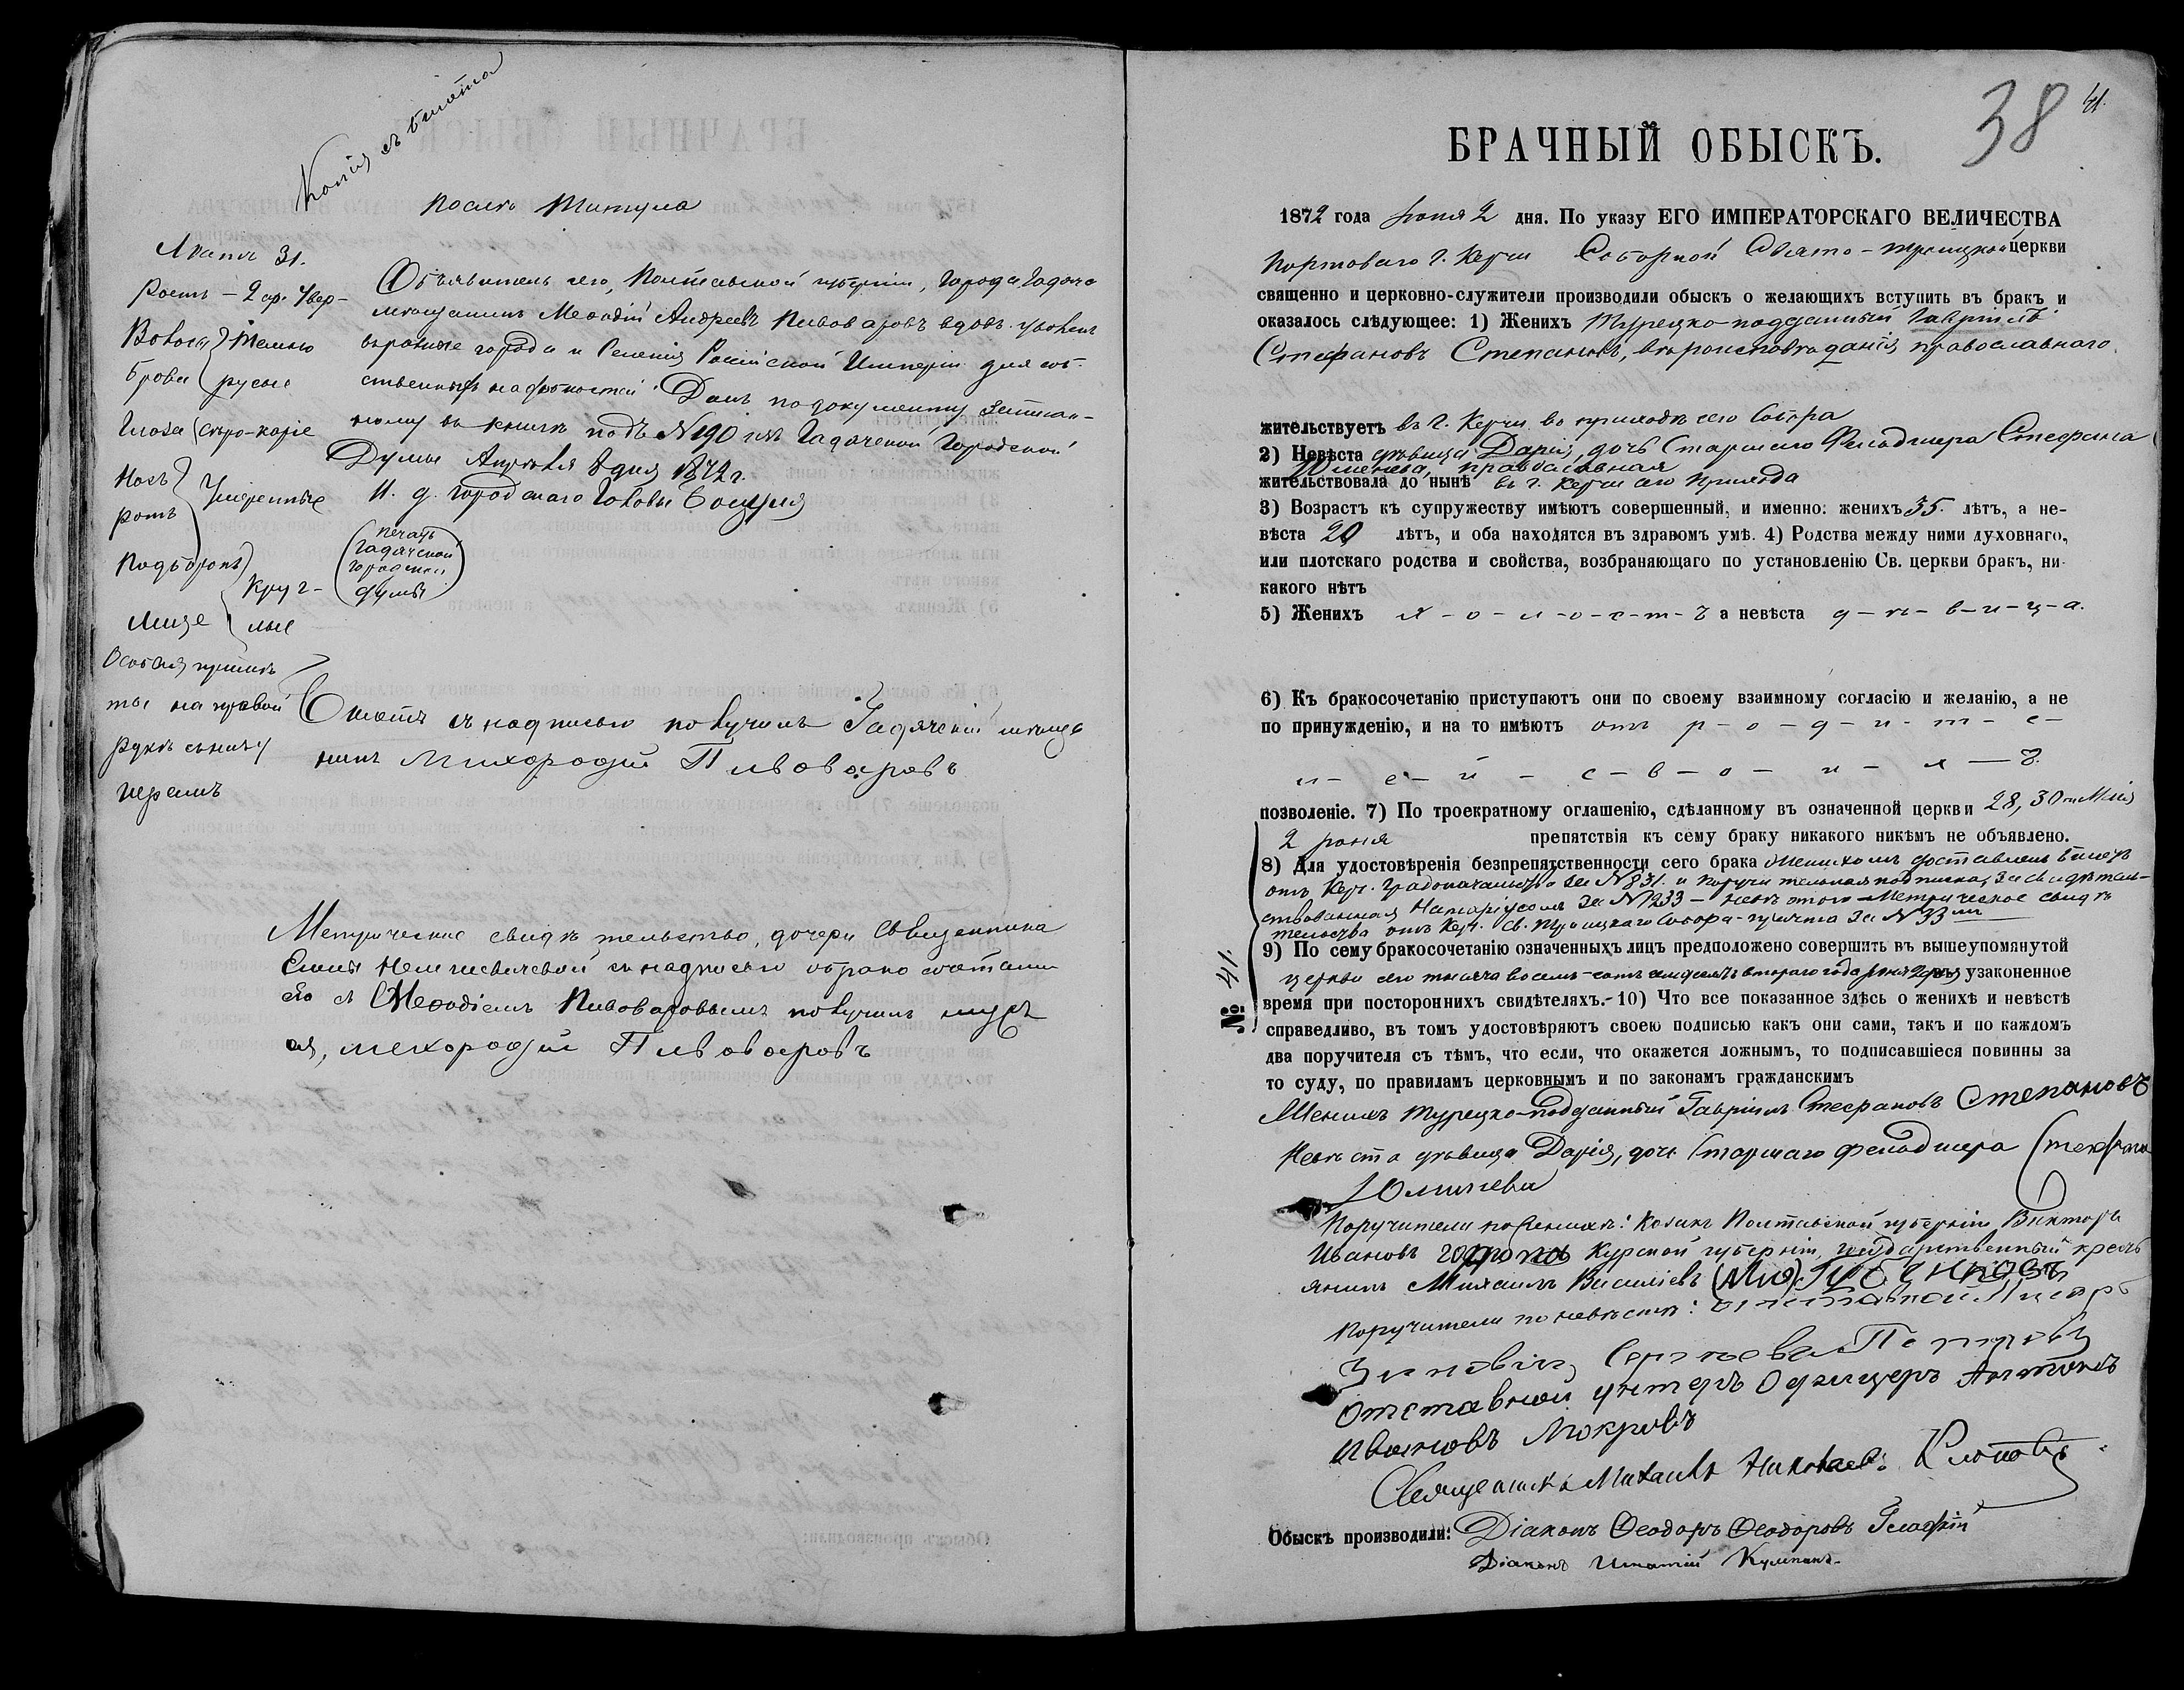 Копія съ билета
После Титула
Лѣтъ 31.
Ростъ – 2 ар. 4 вер–
Волоса Темно
брови русые
Глаза сѣро-каріе
Носъ
ротъ Умеренные
Подбородъ
Лице Круг–
лые
Особыя примѣ
ты на правой
рукѣ
Объявитель сего, Полтавской губерніи, города Гадяча
мещанинъ Меѳодій Андреевъ Пивоваровъ вдовъ, уволенъ
въ разные города и Селенія Россійской Имперіи для соб–
ственныхъ надобностей. Данъ по документу записан–
ному въ книгѣ подъ № 190 изъ Гадячской Городской
Думы Апрѣля 8 дня 1872 г.
И. д. Городскаго Головы
Печать
Гадячской
Городской
думы
Билетъ съ надписью получилъ Гадячскій мѣща
нинъ Пивоваровъ
Метрическое свидѣтельство, дочери Священника
Елены съ надписью о бракосочетаніи
ея съ Меѳодіемъ Пивоваровымъ получилъ мужъ
ея, Пивоваровъ
38 41.
БРАЧНЫЙ ОБЫСКЪ.
1872 года Іюня 2 дня. По указу ЕГО ИМПЕРАТОРСКАГО ВЕЛИЧЕСТВА
Портоваго г. Керчи Соборной Свято-Троицкой церкви
священно и церковно-служители производили обыскъ о желающихъ вступить въ бракъ и
оказалось слѣдующее: 1) Женихъ Турецко-подданный Гавріилъ
Стефановъ Степановъ, вѣроисповѣданія православнаго
жительствуетъ въ г. Керчи въ приходѣ сего Собора
2) Невѣста дѣвица Дарія, дочь Старшаго Фельдшера Стефана
православная
жительствовала до нынѣ въ г. Керчи сего прихода
3) Возрастъ къ супружеству имѣютъ совершенный, и именно: женихъ 35 лѣтъ, а не-
вѣста 20 лѣтъ, и оба находятся въ здравомъ умѣ. 4) Родства между ними духовнаго,
или плотскаго родства и свойства, возбраняющаго по установленію Св. церкви бракъ, ни-
какого нѣтъ
5) Женихъ х-о-л-о-с-т-ъ а невѣста д-ѣ-в-и-ц-а.
6) Къ бракосочетанію приступаютъ они по своему взаимному согласію и желанію, а не
по принужденію, и на то имѣютъ отъ р-о-д-и-т-е-
л-е-й-с-в-о-и-х-ъ
позволеніе. 7) По троекратному оглашенію, сдѣланному въ означенной церкви 28, 30 Мая
2 Іюня препятствія къ сему браку никакого никѣмъ не объявлено.
8) Для удостовѣренія безпрепятственности сего брака Женихомъ доставленъ билетъ
отъ Керч. Градоначальства за № 831. и поручительная подписка, засвидѣтель–
ствованная Нотаріусомъ за № 1233 – невѣстою – Метрическое свидѣ
тельство отъ Керч. Св. Троицкаго Собора – причта за № 33
№ 41.
9) По сему бракосочетанію означенныхъ лицъ предположено совершить въ вышеупомянутой
церкви сего тысяча восемь-сотъ семдесятъ втораго года Іюня 2 дня въ узаконенное
время при постороннихъ свидѣтеляхъ.-10) Что все показанное здѣсь о женихѣ и невѣстѣ
справедливо, въ томъ удостовѣряютъ своею подписью какъ они сами, такъ и по каждомъ
два поручителя съ тѣмъ, что если, что окажется ложнымъ, то подписавшіеся повинны за
то суду, по правиламъ церковнымъ и по законамъ гражданскимъ
Женихъ Турецко-подданный Гавріилъ Стефановъ Степановъ
Невѣста дѣвица Дарія, дочь Старшаго фельдшера Стефана
Поручители по женихѣ: Козакъ Полтавской губерніи Викторъ
Ивановъ Курской губерніи, государственный кресть
янинъ Михаилъ Василіевъ
Поручители по невѣстѣ: отставной Писарь
Зиновій
Отставной унтеръ Офицеръ Антонъ
Ивановъ Мокровъ
Священникъ Михаилъ Николаевъ
Обыскъ производили: Діаконъ Ѳеодоръ Ѳеодоровъ
Діаконъ Игнатій